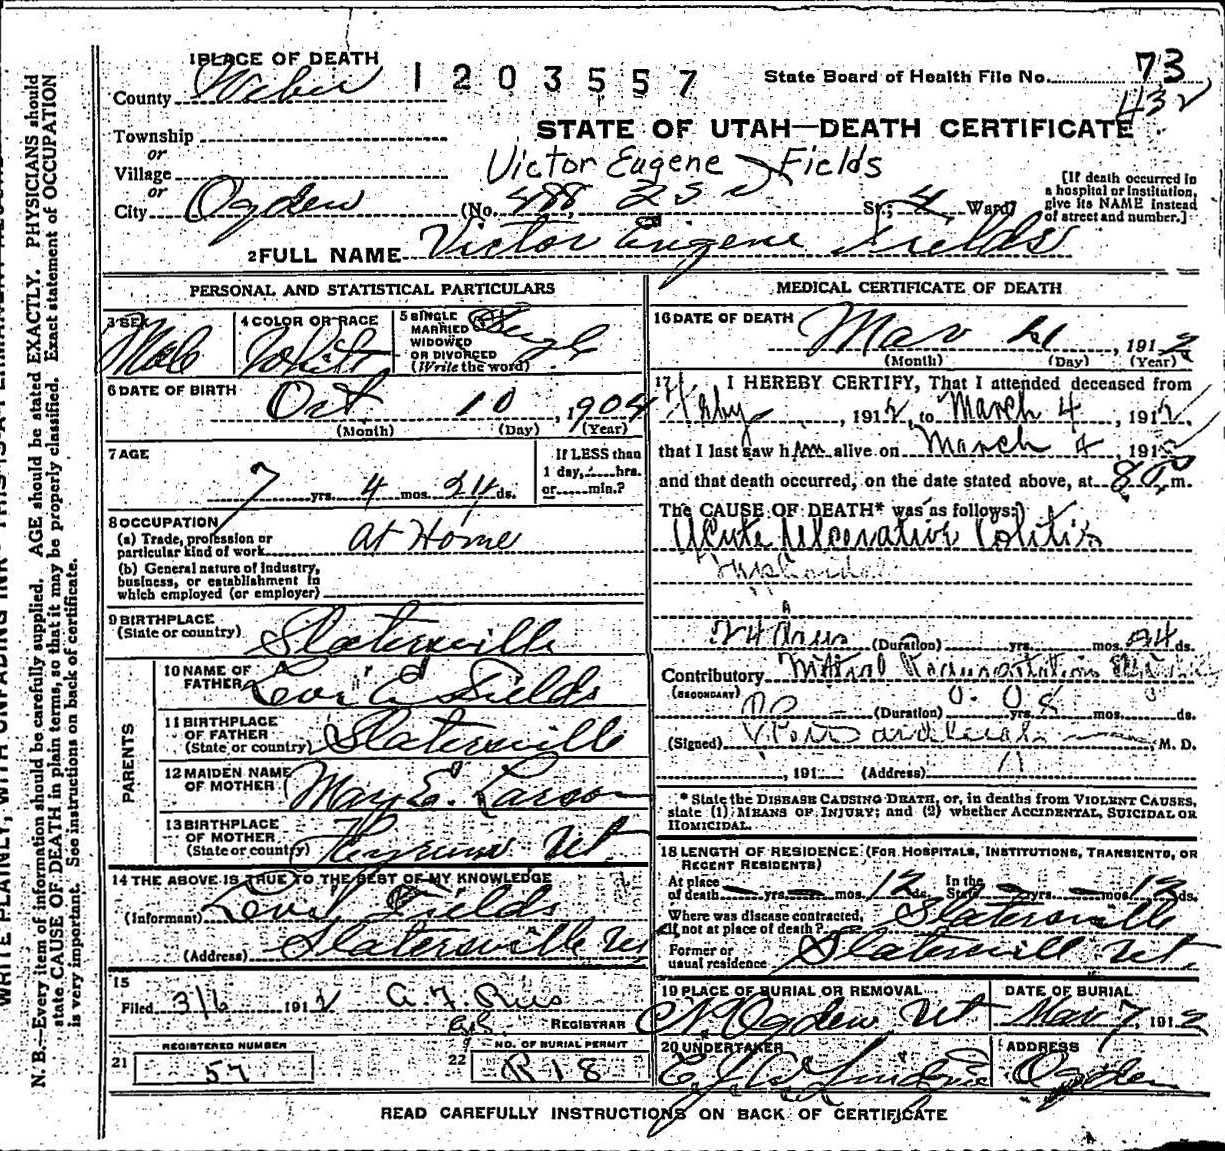 1 PLACE OF DEATH
County Weber
1203557
State Board of Health File No. 73
432
STATE OF UTAH—DEATH CERTIFICATE
Township
or
Village
or
City Ogden
Victor Eugene Fields
(No. 488, 25 St.; 4 Ward)
[If death occurred in
a hospital or institution,
give its NAME instead
of street and number.]
2 FULL NAME Victor Eugene Fields
PERSONAL AND STATISTICAL PARTICULARS
3 SEX
Male
4 COLOR OR RACE
White
5 SINGLE
MARRIED
WIDOWED
OR DIVORCED
(Write the word)
Single
6 DATE OF BIRTH
Oct 10, 1904
(Month) (Day) (Year)
7 AGE
7 yrs. 4 mos. 24 ds.
If LESS than
1 day, hrs.
or min.?
8 OCCUPATION
(a) Trade, profession or
particular kind of work At Home
(b) General nature of industry,
business, or establishment in
which employed (or employer)
9 BIRTHPLACE
(State or country) Slatersville
PARENTS
10 NAME OF
FATHER Levi E Fields
11 BIRTHPLACE
OF FATHER
(State or country) Slatersville
12 MAIDEN NAME
OF MOTHER May E. Larson
13 BIRTHPLACE
OF MOTHER
(State or country) Hyrum Ut.
14 THE ABOVE IS TRUE TO THE BEST OF MY KNOWLEDGE
(Informant) Levi Fields
(Address) Slatersville Ut
15
Filed 3/6 1912
REGISTRAR
21
REGISTERED NUMBER
57
22
NO. OF BURIAL PERMIT
R 18
MEDICAL CERTIFICATE OF DEATH
16 DATE OF DEATH
Mar 4, 1912
(Month) (Day) (Year)
17 I HEREBY CERTIFY, That I attended deceased from
1912, to March 4, 1912,
that I last saw him alive on March 4, 1912
and that death occurred, on the date stated above, at m.
The CAUSE OF DEATH* was as follows:
Acute Ulcerative Colitis
Typhoidal
(Duration) yrs. mos. 24 ds.
Contributory Mitral Regurgitation
(SECONDARY)
(Duration) yrs. mos. ds.
(Signed) M. D.
, 191 (Address)
* State the DISEASE CAUSING DEATH, or, in deaths from VIOLENT CAUSES,
state (1) MEANS OF INJURY; and (2) whether ACCIDENTAL, SUICIDAL OR
HOMICIDAL.
18 LENGTH OF RESIDENCE (FOR HOSPITALS, INSTITUTIONS, TRANSIENTS, OR
RECENT RESIDENTS)
At place
of death — yrs. — mos. 12 ds. In the
State yrs. — mos. ds.
Where was disease contracted,
If not at place of death? Slatersville
Former or
usual residence Slatersvill Ut.
19 PLACE OF BURIAL OR REMOVAL
N. Ogden, Ut
DATE OF BURIAL
Mar 7, 1912
20 UNDERTAKER
ADDRESS
Ogden
READ CAREFULLY INSTRUCTIONS ON BACK OF CERTIFICATE
WRITE PLAINLY, WITH UNFADING INK
N. B.—Every item of information should be carefully supplied. AGE should be stated EXACTLY. PHYSICIANS should
state CAUSE OF DEATH in plain terms, so that it may be properly classified. Exact statement of OCCUPATION
is very important. See instructions on back of certificate.